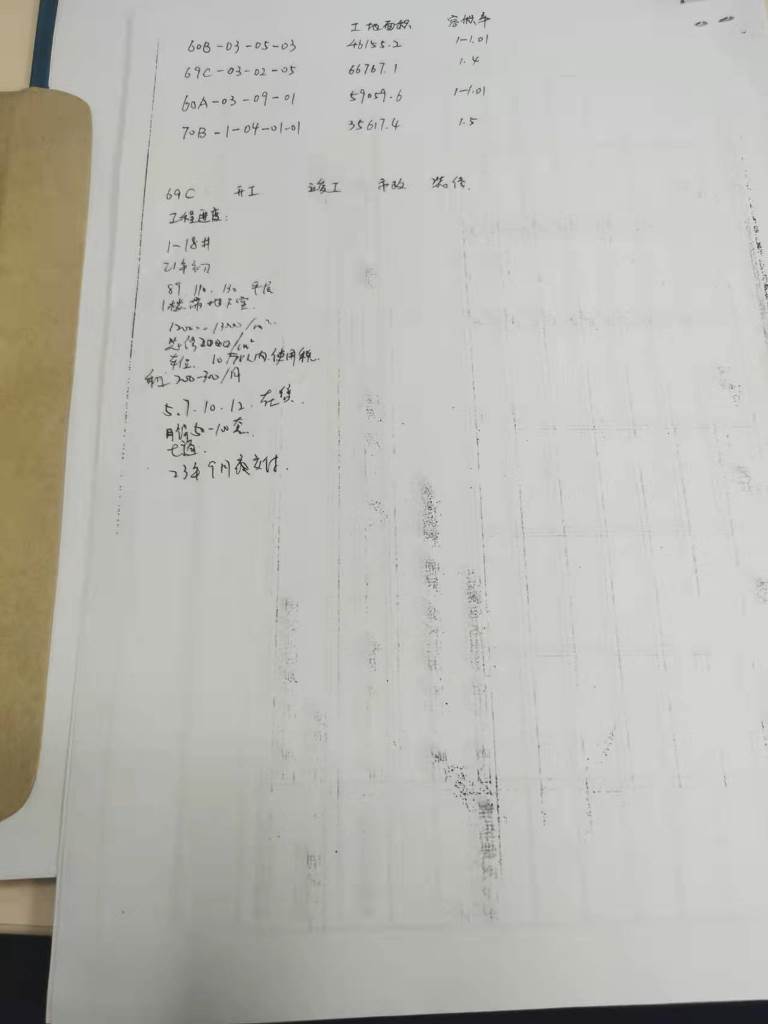 工地面积 容积率
60B-03-05-03 46155.2 1-1.01
69C-03-02-05 66767.1 1.4
60A-03-09-01 59059.6 1-1.01
70B-1-04-01-01 35617.4 1.5
69C 开工 竣工 市政 装修.
工程进度:
1-18#
21年初
89 110. 130 平层
1楼带地下室.
/m².
装修2000/m²
车位. 10万以内.使用权.
200-300/月
5.7.10.12. 在
月 50-100套.
23年9月 交付.